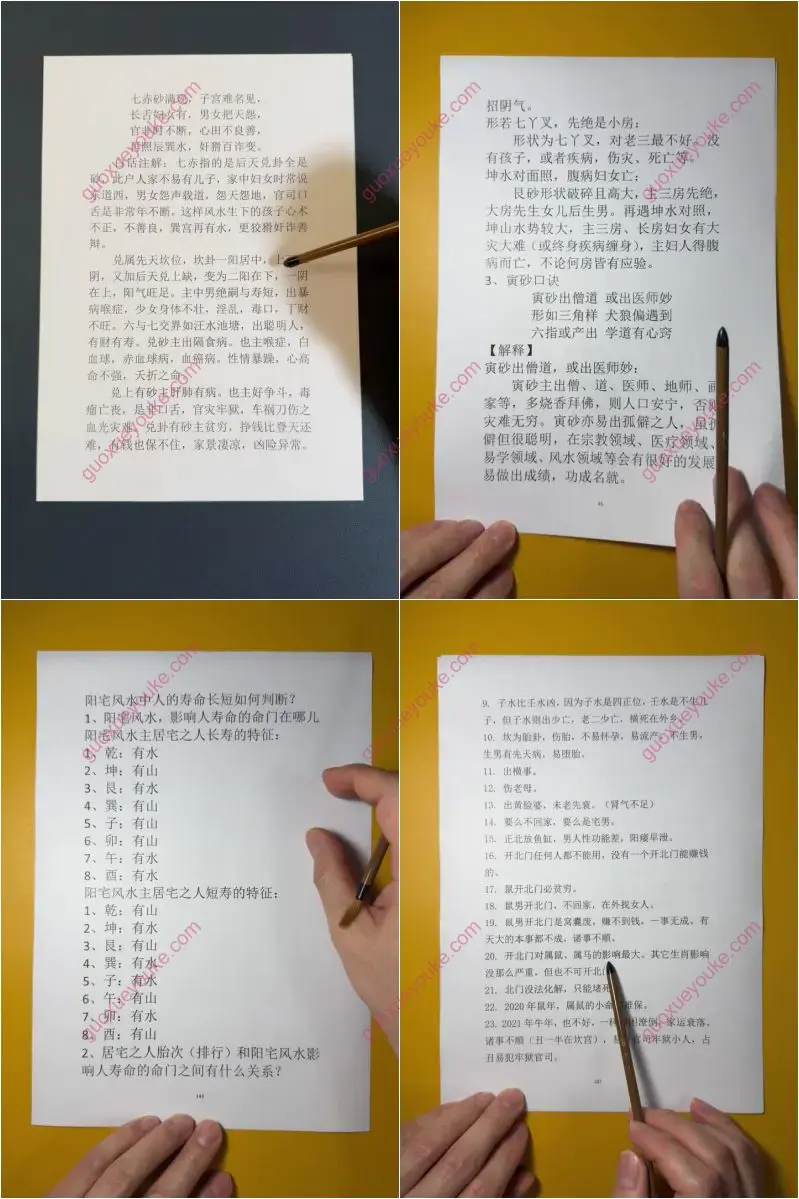 七赤砂满现，子宫难名见，
长舌妇女有，男女把天怨，
官非时不断，心田不良善，
再照辰巽水，奸猾百诈变。
白话注解：七赤指的是后天兑卦全是
砂，此户人家不易有儿子，家中妇女时常说
东道西，男女怨声载道，怨天怨地，官司口
舌是非常年不断，这样风水生下的孩子心术
不正，不善良，巽宫再有水，更狡猾奸诈善
辩。
兑属先天坎位，坎卦一阳居中，上
阴，又加后天兑上缺，变为二阳在下，一阴
在上，阳气旺足。主中男绝嗣与寿短，出暴
病喉症，少女身体不壮，淫乱，毒口，丁财
不旺。六与七交界如汪水池塘，出聪明人，
有财有寿。兑砂主出隔食病。也主喉症，白
血球，赤血球病，血癌病。性情暴躁，心高
命不强，夭折之命
兑上有砂主肝肺有病。也主好争斗，毒
瘤亡丧，是非口舌，官灾牢狱，车祸刀伤之
血光灾难。兑卦有砂主贫穷，挣钱比登天还
难，有钱也保不住，家景凄凉，凶险异常。
招阴气。
形若七丫叉，先绝是小房；
形状为七丫叉，对老三最不好，没
有孩子，或者疾病，伤灾、死亡等。
坤水对面照，腹病妇女亡；
艮砂形状破碎且高大，主三房先绝，
大房先生女儿后生男。再遇坤水对照，
坤山水势较大，主三房、长房妇女有大
灾大难（或终身疾病缠身），主妇人得腹
病而亡，不论何房皆有应验。
3、寅砂口诀
寅砂出僧道 或出医师妙
形如三角样 犬狼偏遇到
六指或产出 学道有心窍
【解释】
寅砂出僧道，或出医师妙：
寅砂主出僧、道、医师、地师、画
家等，多烧香拜佛，则人口安宁，否则
灾难无穷。寅砂亦易出孤僻之人，虽孤
僻但很聪明，在宗教领域、医疗领域、
易学领域、风水领域等会有很好的发展
易做出成绩，功成名就。
阳宅风水中人的寿命长短如何判断？
1、阳宅风水，影响人寿命的命门在哪儿
阳宅风水主居宅之人长寿的特征：
1、乾：有水
2、坤：有山
3、艮：有水
4、巽：有山
5、子：有山
6、卯：有山
7、午：有水
8、酉：有水
阳宅风水主居宅之人短寿的特征：
1、乾：有山
2、坤：有水
3、艮：有山
4、巽：有水
5、子：有水
6、午：有山
7、卯：有水
8、酉：有山
2、居宅之人胎次（排行）和阳宅风水影
响人寿命的命门之间有什么关系？
9. 子水比壬水凶，因为子水是四正位，壬水是不生儿
子，但子水则出少亡，老二少亡，横死在外乡。
10. 坎为胎卦，伤胎，不易怀孕，易流产，不生男，
生男有先天病，易堕胎。
11. 出横事。
12. 伤老母。
13. 出黄脸婆、未老先衰。（肾气不足）
14. 要么不回家，要么是宅男。
15. 正北放鱼缸，男人性功能差，阳痿早泄。
16. 开北门任何人都不能用，没有一个开北门能赚钱
的。
17. 鼠开北门必贫穷。
18. 鼠男开北门、不回家，在外找女人。
19. 鼠男开北门是窝囊废，赚不到钱，一事无成。有
天大的本事都不成，诸事不顺。
20. 开北门对属鼠、属马的影响最大。其它生肖影响
没那么严重，但也不可开北门
21. 北门没法化解，只能堵死
22. 2020年鼠年，属鼠的小命难保。
23. 2021年牛年，也不好，一样潦倒，家运衰落，
诸事不顺（丑一半在坎宫），易官司牢狱小人，占
丑易犯牢狱官司。
guoxueyouke.com
guoxueyouke.com
guoxueyouke.com
guoxueyouke.com
guoxueyouke.com
guoxueyouke.com
guoxueyouke.com
guoxueyouke.com